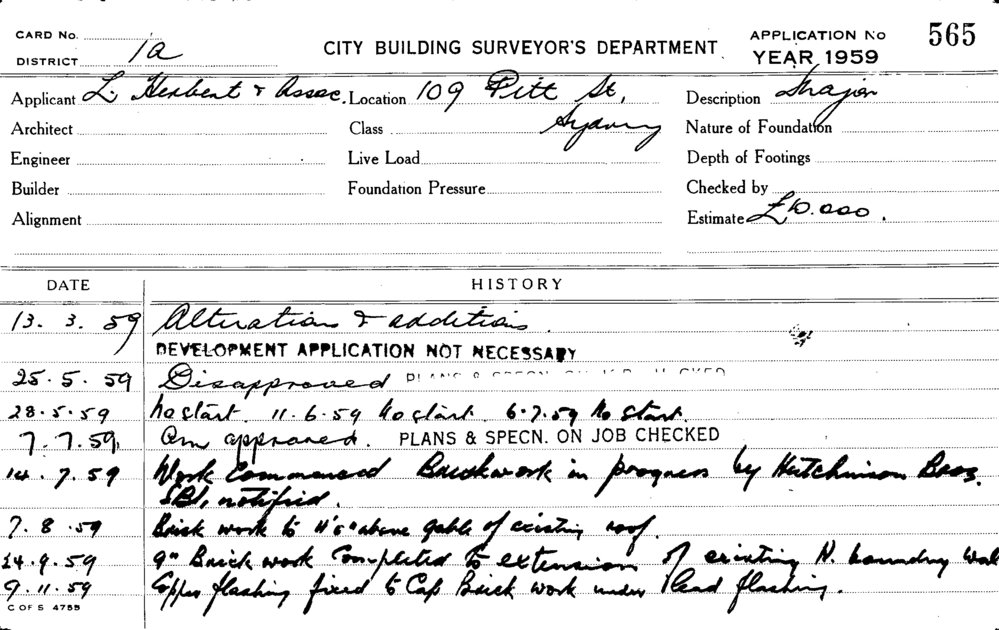 CARD No.
DISTRICT 1a
CITY BUILDING SURVEYOR'S DEPARTMENT
APPLICATION No 565
YEAR 1959
Applicant L. Herbert & Assoc. Location 109 Pitt St, Description
Architect Class Sydney Nature of Foundation
Engineer Live Load Depth of Footings
Builder Foundation Pressure Checked by
Alignment Estimate £10.000.
DATE HISTORY
13. 3. 59 Alterations & additions.
DEVELOPMENT APPLICATION NOT NECESSARY
25. 5. 59 Disapproved
28. 5. 59 No start 11. 6. 59 No start 6. 7. 59 No Start.
7. 7. 59. approved. PLANS & SPECN. ON JOB CHECKED
14. 7. 59 Work Commenced Brickwork in progress by Hutchinson Bros.
notified.
7. 8. 59 Brick work to 11'6" above gable of existing roof.
24. 9. 59 9" Brick work Completed to extension of existing N. boundry Wal
9. 11. 59 flashing fixed to Cap Brick work under lead flashing.
C OF S 4755